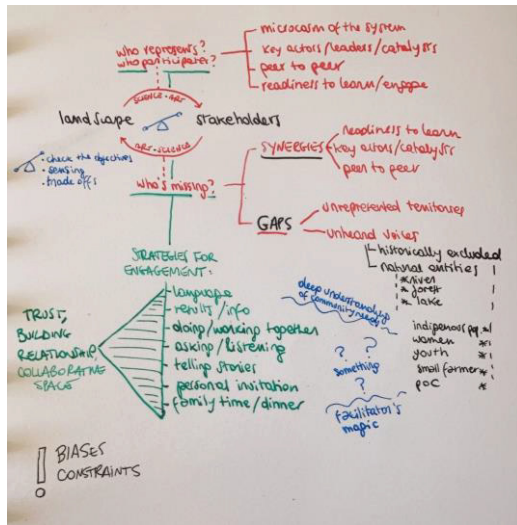 who represents?
who participates?
microcosm of the system
key actors/leaders/catalysts
peer to peer
readiness to learn/engage
SCIENCE + ART
landscape
stakeholders
ART + SCIENCE
• check the objectives
• sensing
• trade offs
who's missing?
SYNERGIES
readiness to learn
key actors/catalysts
peer to peer
GAPS
unrepresented territories
unheard voices
historically excluded
natural entities
* rivers
* forest
* lake
indigenous pop. *
women *
youth *
small farmer *
POC *
STRATEGIES FOR
ENGAGEMENT:
language
results/info
doing/working together
asking/listening
telling stories
personal invitation
family time/dinner
TRUST,
BUILDING
RELATIONSHIP,
COLLABORATIVE
SPACE
deep understanding
of community needs
? ?
something
?
facilitator's
magic
! BIASES
CONSTRAINTS